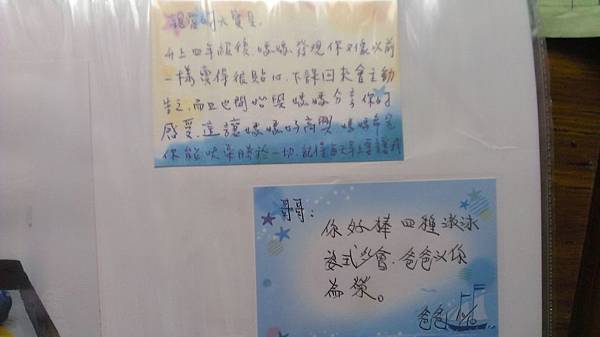 親愛的大寶貝
升上四年級後,媽媽發現你又像以前
一樣變得很貼心,下課回來會主動
告之,而且也開始與媽媽分享你的
感受,這讓媽媽好高興,媽媽希望
你能快樂勝於一切,就像
哥哥:
你好棒 四種泳泳
姿式都會,爸爸以你
為榮。
爸爸